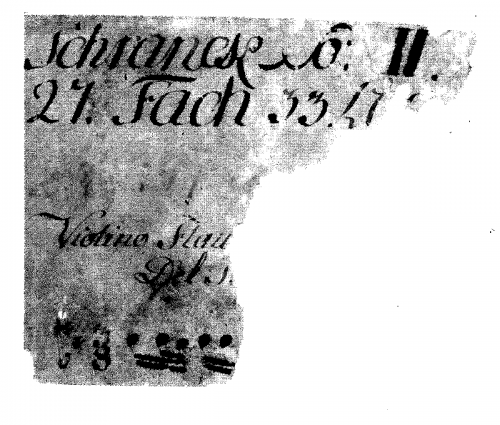 Schranck No: II.
27. Fach 33. L
Violino Flau
Del S.